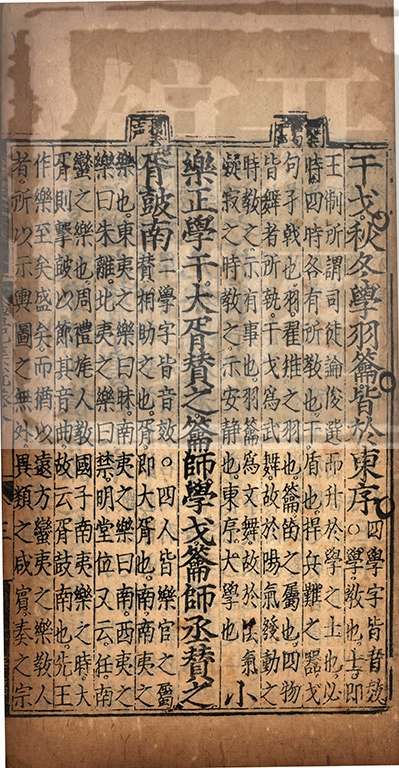 干戈秋冬學羽籥皆於東序四學字皆音效
○學教也士即
王制所謂司徒論俊選而升於學之士也必
時四時各有所教也干盾也捍兵難之器戈
句孑戟也羽翟雉之羽也籥笛之屬也四物
皆舞者所執干戈爲武舞故於陽氣發動之
時教之示有事也羽籥爲文舞故於陰氣
凝寂之時教之示安静也東序大學也
小
樂正學干大胥贊之籥師學戈籥師丞贊之
胥鼓南二學字皆音效○四人皆樂官之屬
贊相助之也胥即大胥也南南夷之
樂也東夷之樂曰昧南夷之樂曰南西夷之
樂曰朱離北夷之樂曰禁明堂位又云任南
蠻之樂也周禮旄人教國子南夷樂之時大
胥則擊鼓以節其音曲故云胥鼓南也先王
作樂至矣盛矣而猶以遠方蠻夷之樂教人
者所以示輿圖之無外異類之咸賓奏之宗